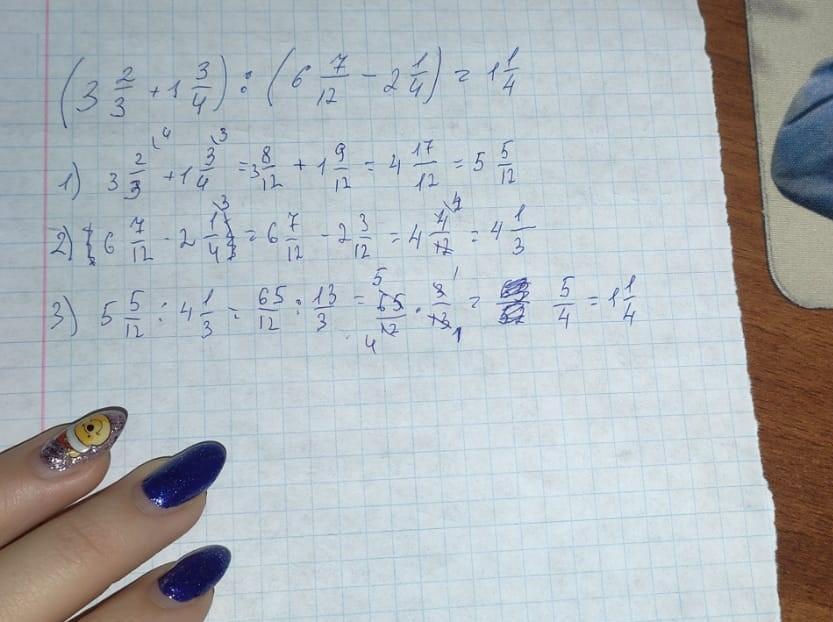 (3 2/3 + 1 3/4) : (6 7/12 - 2 1/4) = 1 1/4
1) 3 2/3 \4 + 1 3/4 \3 = 3 8/12 + 1 9/12 = 4 17/12 = 5 5/12
2) 6 7/12 - 2 1/4 \3 = 6 7/12 - 2 3/12 = 4 4/12 \4 = 4 1/3
3) 5 5/12 : 4 1/3 = 65/12 : 13/3 = 5 65/12 4 · 3/13 1 1 = 5/4 = 1 1/4